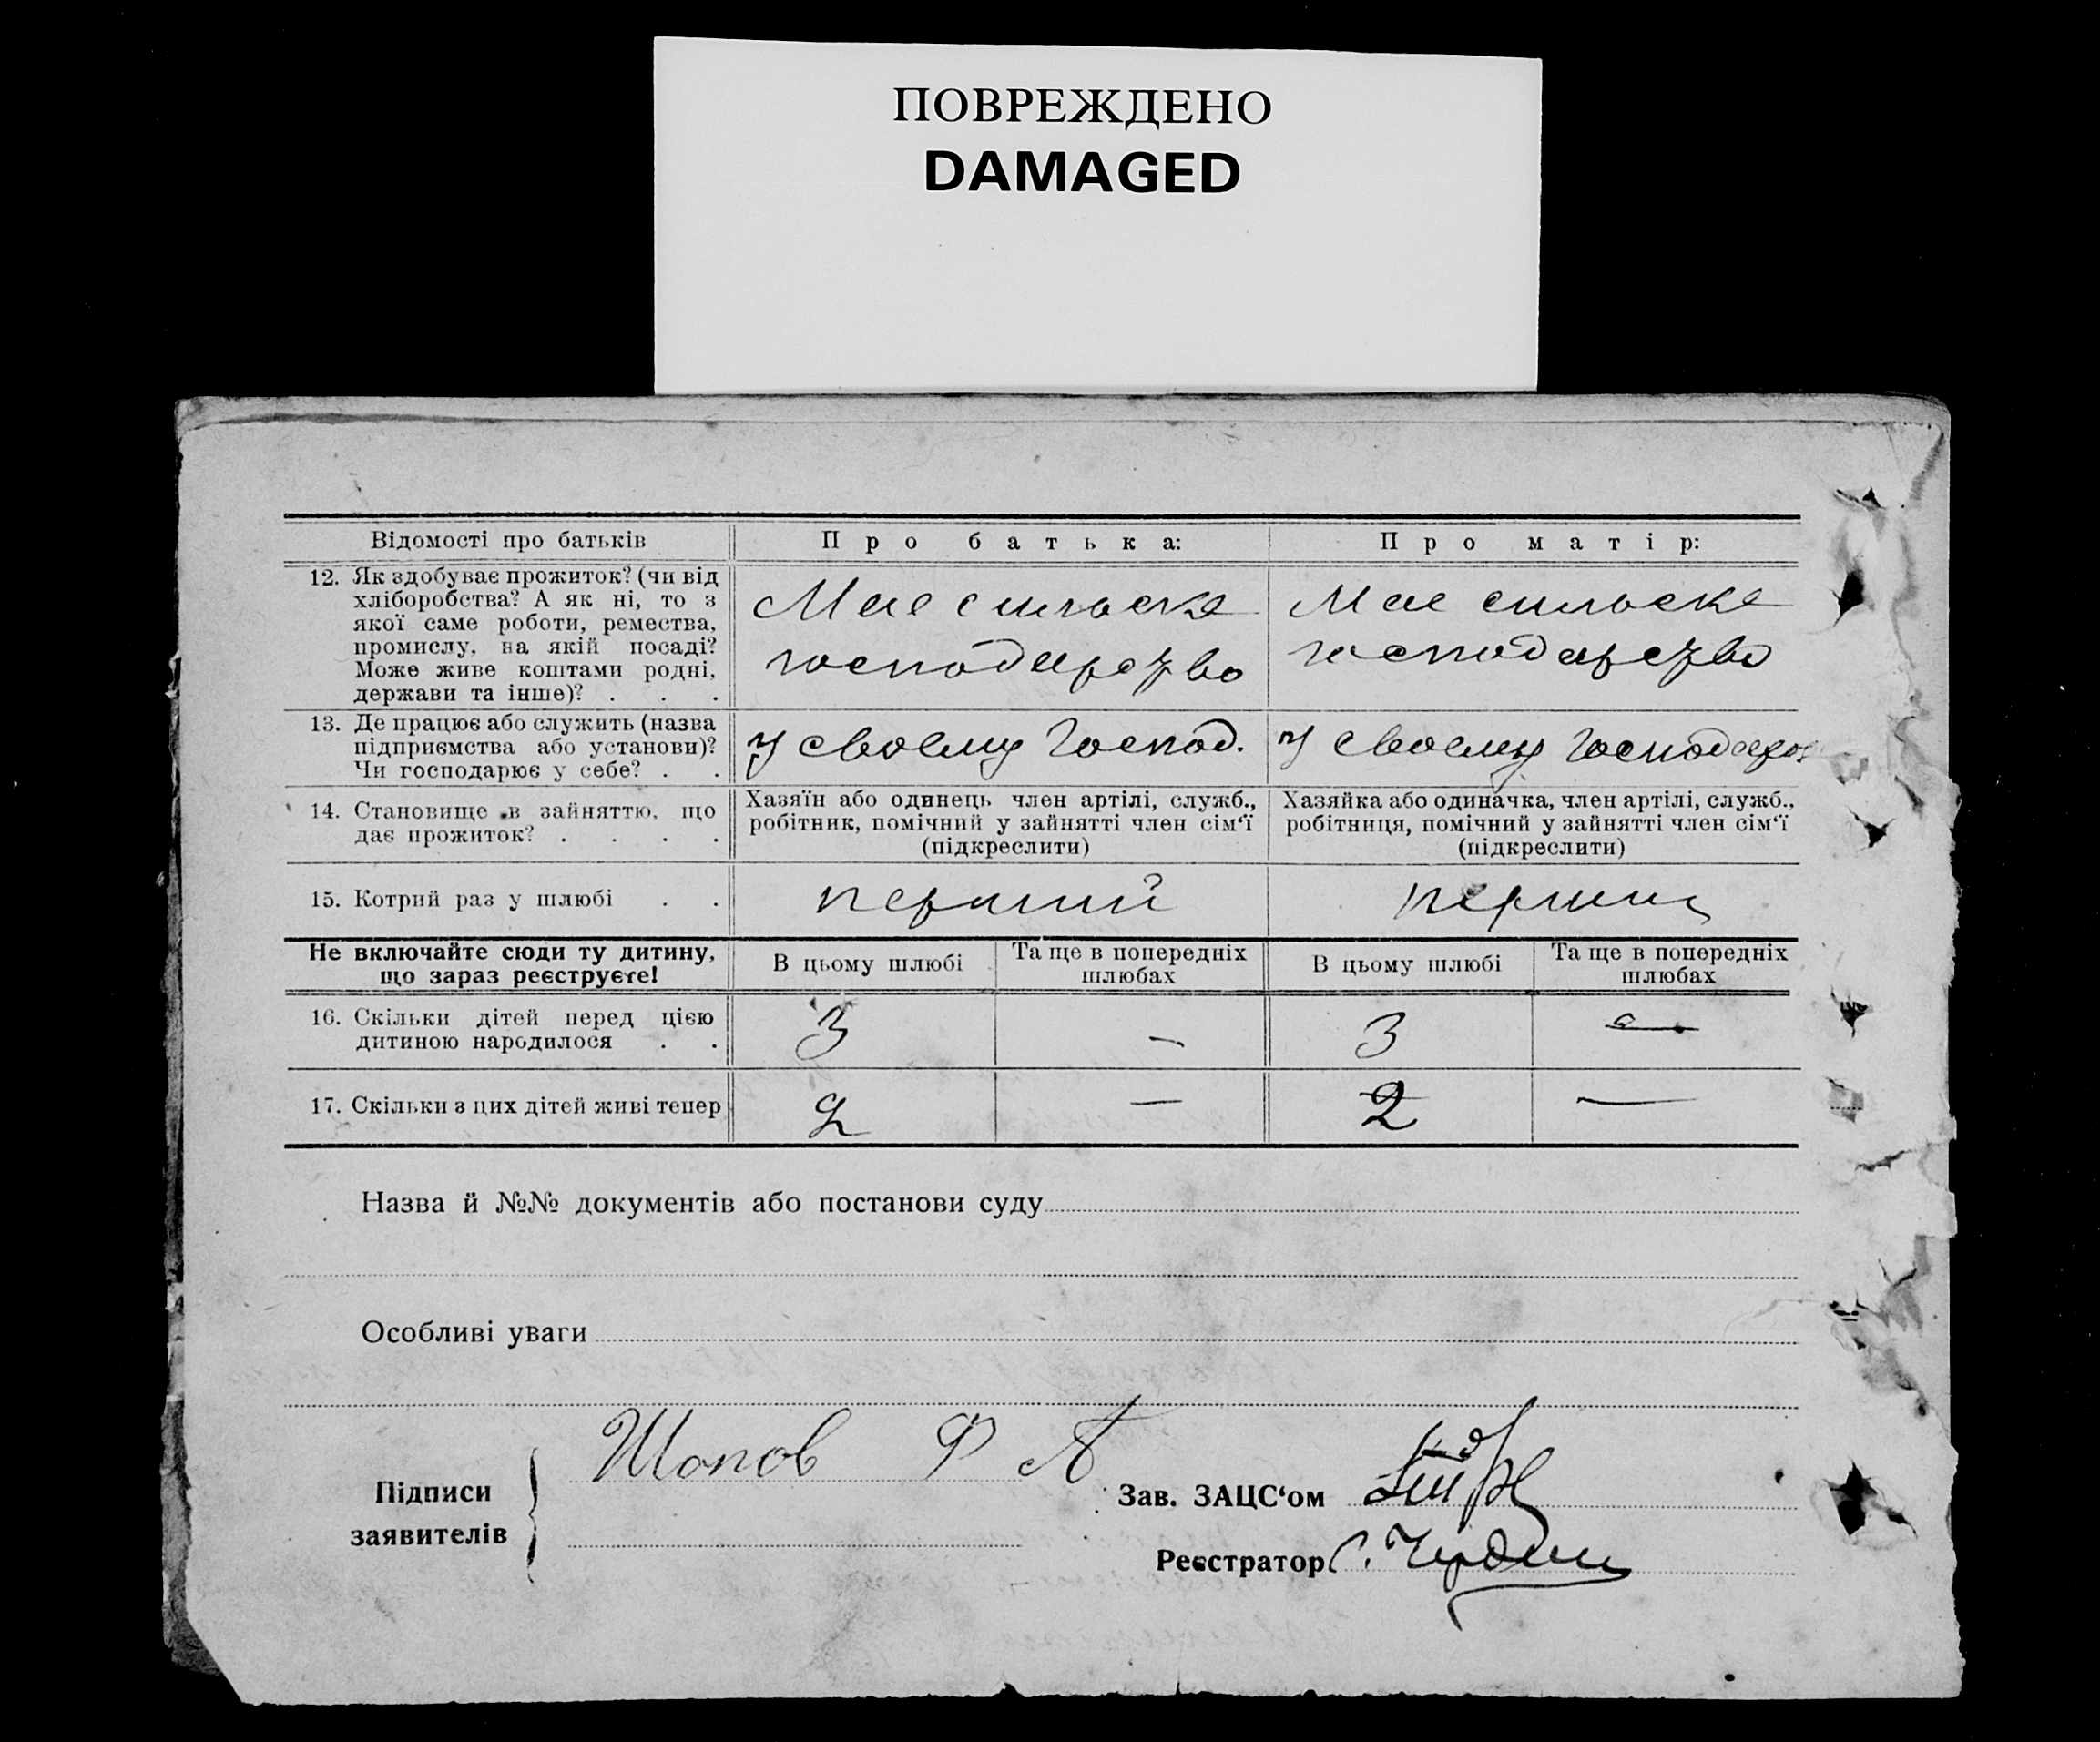 ПОВРЕЖДЕНО
DAMAGED
Відомості про батьків
Про батька:
Про матір:
12. Як здобуває прожиток? (чи від
хліборобства? А як ні, то з
якої саме роботи, ремества,
промислу, на якій посаді?
Може живе коштами родні,
держави та інше)? . . .
Має сильске
господарство
Має сильске
господарство
13. Де працює або служить (назва
підприємства або установи)?
Чи господарює у себе? . .
У своєму Господ.
У своєму Господар
14. Становище в зайняттю, що
дає прожиток? . . . .
Хазяїн або одинець член артілі, служб.,
робітник, помічний у зайнятті член сім‘ї
(підкреслити)
Хазяйка або одиначка, член артілі, служб.,
робітниця, помічний у зайнятті член сім‘ї
(підкреслити)
15. Котрий раз у шлюбі . .
перший
Не включайте сюди ту дитину,
що зараз реєструєте!
В цьому шлюбі
Та ще в попередніх
шлюбах
В цьому шлюбі
Та ще в попередніх
шлюбах
16. Скільки дітей перед цією
дитиною народилося . .
3
—
3
—
17. Скільки з цих дітей живі тепер
2
—
2
—
Назва й №№ документів або постанови суду
Особливі уваги
Підписи
заявителів
Шопов Ф А
Зав. ЗАЦС‘ом
Реєстратор